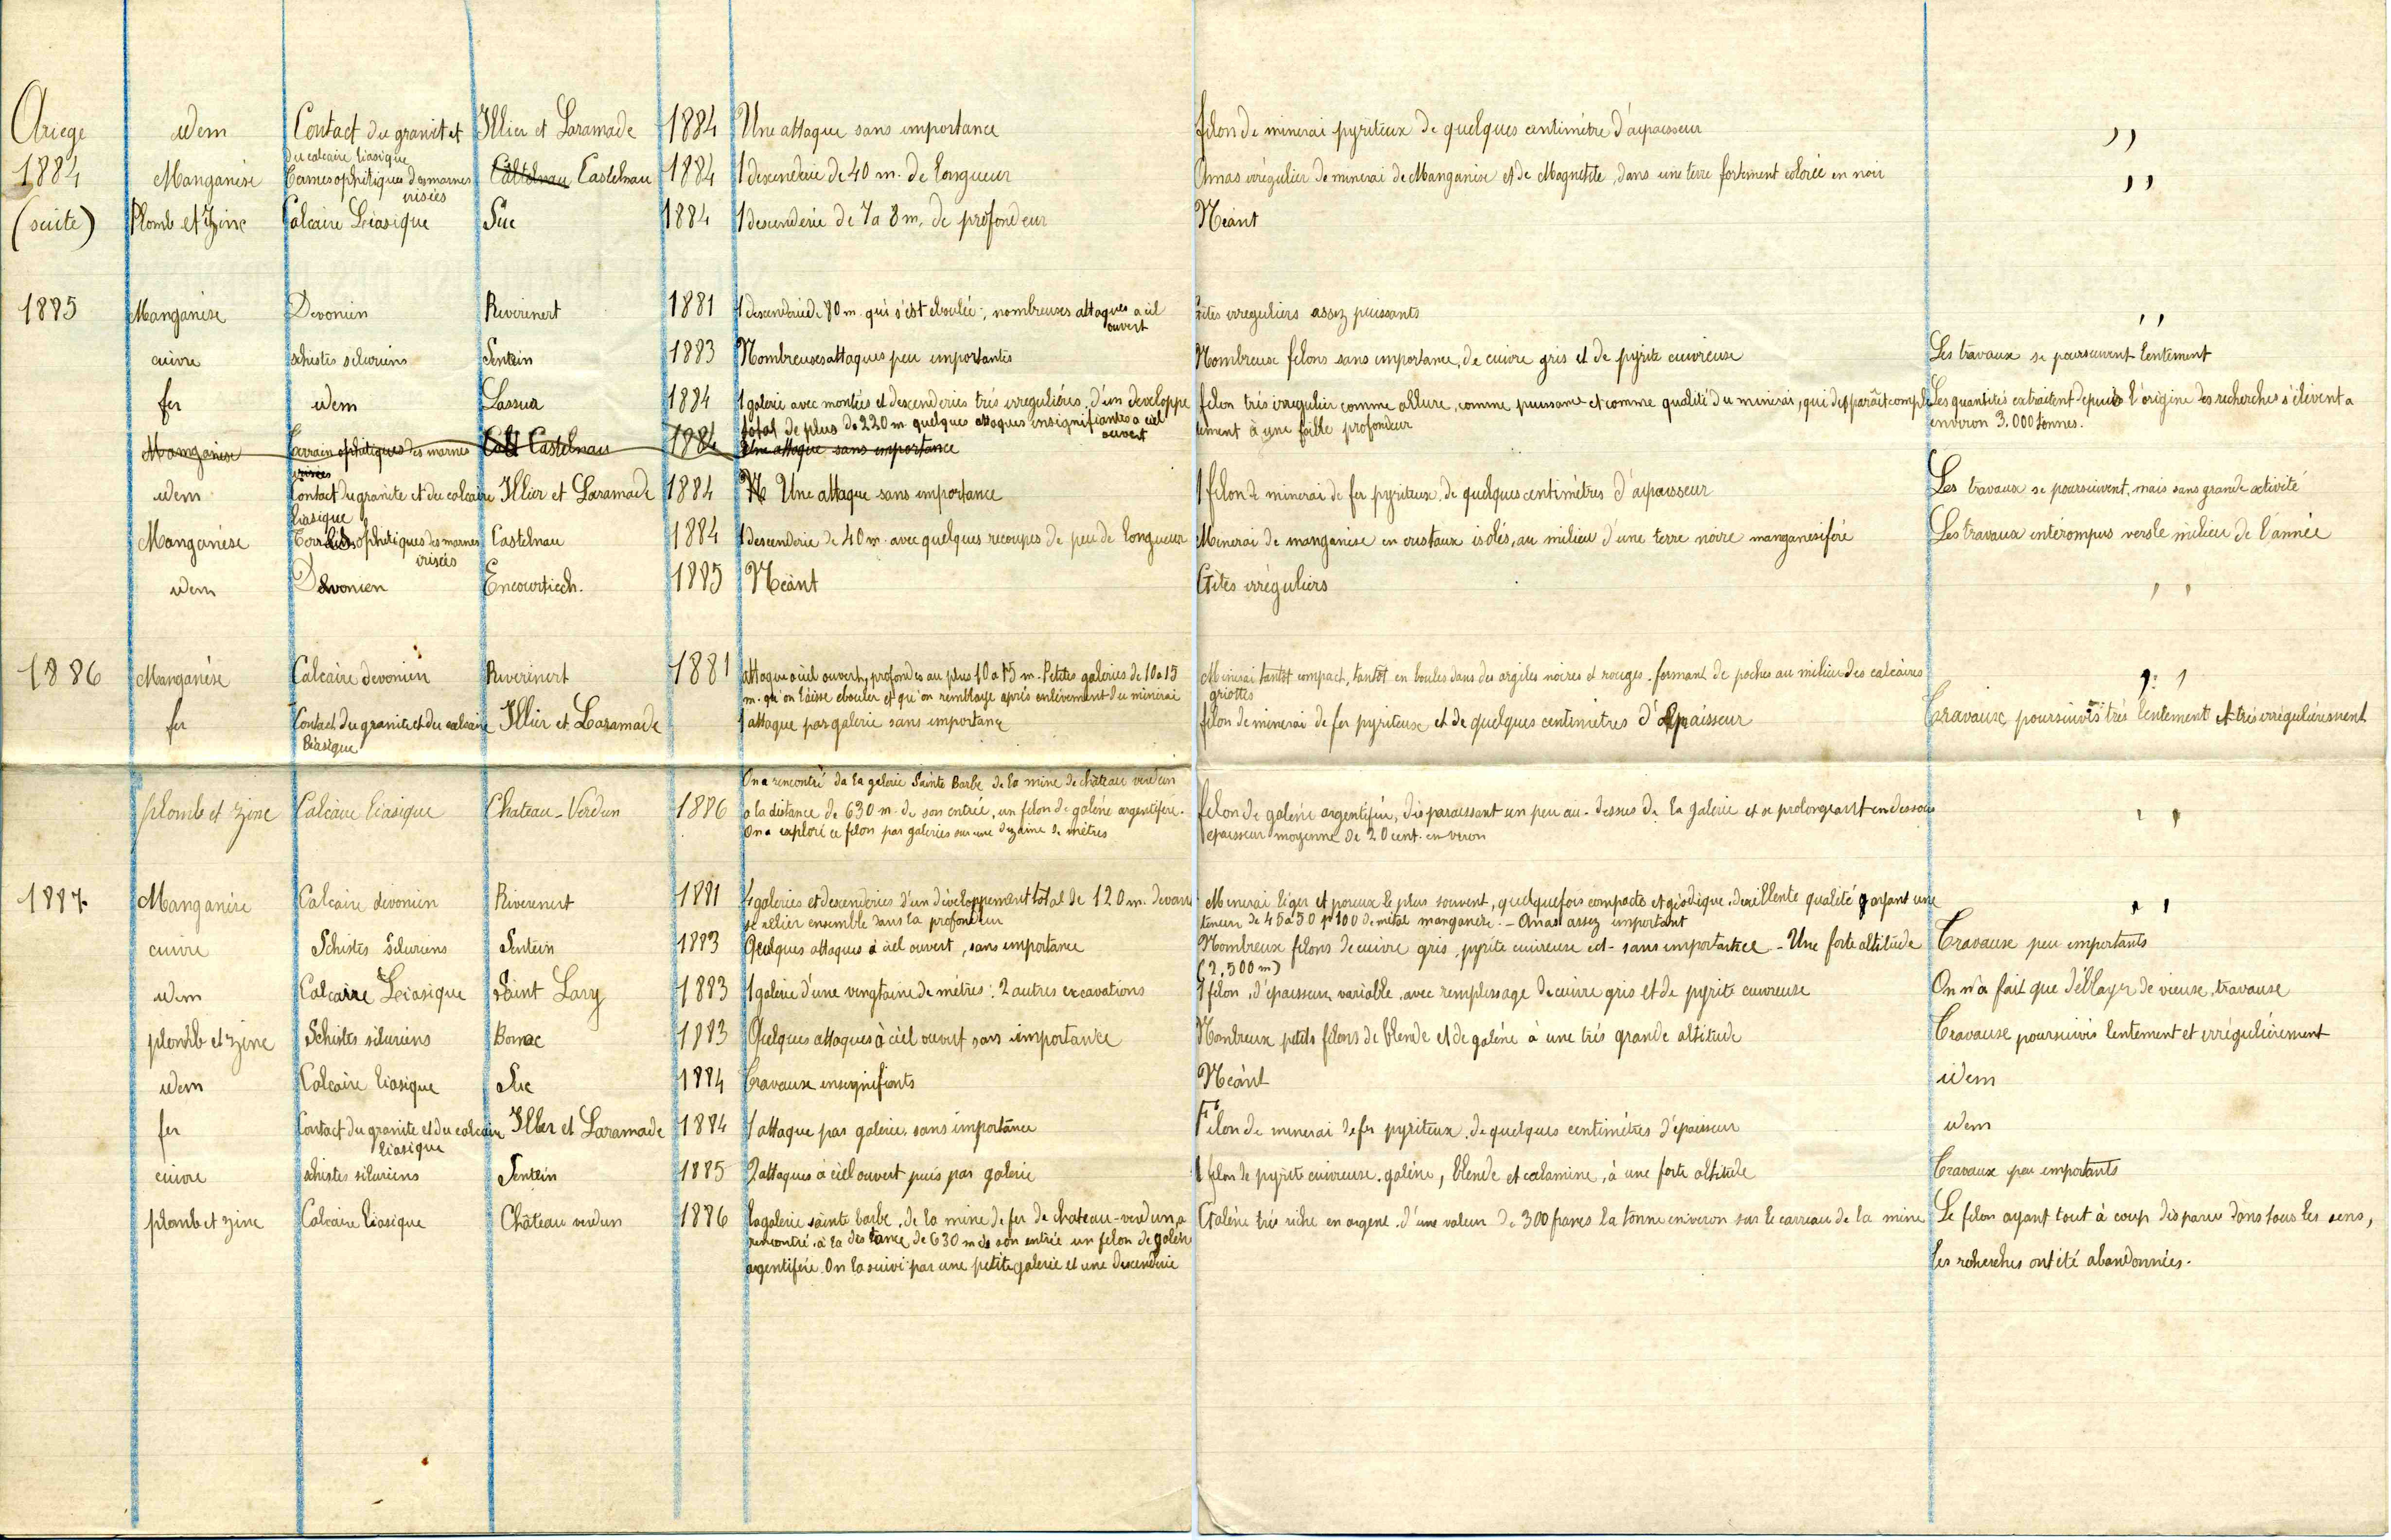 Ariege idem Contact du granit et Illier et Laramade 1884 Une attaque sans importance filon de minerai pyriteux de quelques centimètre d'aipaisseur ,,
du calcaire liasique
1884 Manganèse ophitiques des marnes Castelnau 1884 1 descenderie de 40 m. de longueur Amas irrégulier de minerai de Manganèse et de Magnetite, dans une terre fortement colorée en noir ,,
irisées
(suite) Plomb et Zinc Calcaire Liasique Suc 1884 1 descenderie de 7 a 8 m. de profondeur Néant
1885 Manganèse Devonien Riverenert 1881 1 descenderie de 80 m. qui s'est eboulée; nombreuses attaques a cil Gites irreguliers assez puissants ,,
ouvert
cuivre schistes siluriens Sentein 1883 Nombreuses attaques peu importantes Nombreux filons sans importance, de cuivre gris et de pyrite cuivreuse Les travaux se poursuivent lentement
fer idem Lassur 1884 1 galerie avec montées et descenderies très irregulières, d'un developpe filon très irregulier comme allure, comme puissance et comme qualité du minerai, qui disparaît comple Les quantités extraitent depuis l'origine des recherches s'élèvent a
total de plus de 220 m quelques attaques insignifiantes a ciel tement à une faible profondeur environ 3.000 tonnes.
ouvert
Manganèse Terrain ophitiques des marnes Castelnau 1884 Une attaque sans importance
irisées
idem Contact du granite et du calcaire Illier et Laramade 1884 Une attaque sans importance 1 filon de minerai de fer pyriteux, de quelques centimètres d'aipaisseur Les travaux se poursuivent, mais sans grande activité
liasique
Manganèse ophitiques des marnes Castelnau 1884 1 descenderie de 40 m. avec quelques recoupes de peu de longueur Minerai de manganèse en cristaux isolés, au milieu d'une terre noire manganesiféré Les travaux intérompus vers le milieu de l'année
irisées
idem Devonien Encourtiech. 1885 Néant Gites irréguliers ,,
1886 Manganèse Calcaire devonien Riverenert 1881 attaque a ciel ouvert, profondes au plus 10 a 15 m. Petites galeries de 10 a 15 Minerai tantôt compact, tantôt en boules dans des argiles noires et rouges, formant de poches au milieu des calcaires ,,
m. qu'on laisse ebouler et qu'on remblaye après enlèvement du minerai griottes
fer Contact du granite et du calcaire Illier et Laramade 1 attaque par galerie sans importance filon de minerai de fer pyriteux et de quelques centimètres d'epaisseur Travaux poursuivis très lentement et très irrégulièrement
liasique
On a rencontré da la galerie Sainte Barbe de la mine de château verdun
plomb et zinc Calcaire liasique Chateau-Verdun 1886 a la distance de 630 m. de son entrée, un filon de galène argentifère. filon de galène argentifère, disparaissant un peu au-dessus de la galerie et se prolongeant en dessous ,,
On a exploré ce filon par galeries sur une dizaine de mètres epaisseur moyenne de 20 cent. environ
1887. Manganèse Calcaire devonien Riverenert 1881 4 galeries et descenderies d'un développement total de 120 m. devant Minerai léger et poreux le plus souvent, quelquefois compacte et géodique, d'exillente qualité ayant une ,,
se relier ensemble dans la profondeur teneur de 45 a 50 p 100 de métal manganèse. - Amas assez important
cuivre Schistes Siluriens Sentein 1883 Quelques attaques à ciel ouvert, sans importance Nombreux filons de cuivre gris, pyrite cuivreuse ect - sans importance - Une forte altitude Travaux peu importants
(2,500 m)
idem Calcaire Liasique Saint Lary 1883 1 galerie d'une vingtaine de mètres: 2 autres excavations 1 filon, d'épaisseur variable, avec remplissage de cuivre gris et de pyrite cuivreuse On n'a fait que déblayer de vieux travaux
plomb et zinc Schistes siluriens Bonac 1883 Quelques attaques à ciel ouvert sans importance Nombreux petits filons de blende et de galène à une très grande altitude Travaux poursuivis lentement et irrégulièrement
idem Calcaire liasique Suc 1884 Travaux insignifiants Néant idem
fer Contact du granite et du calcaire Illier et Laramade 1884 1 attaque par galerie, sans importance Filon de minerai de fer pyriteux, de quelques centimètres d'épaisseur idem
liasique
cuivre schistes siluriens Sentein 1885 2 attaques à ciel ouvert puis par galerie 1 filon de pyrite cuivreuse, galène, blende et calamine, à une forte altitude Travaux peu importants
plomb et zinc Calcaire liasique Château verdun 1886 la galerie sainte barbe, de la mine de fer de chateau-verdun, a Galène très riche en argent, d'une valeur de 300 francs la tonne environ sur le carreau de la mine Le filon ayant tout à coup disparu dans tous les sens,
rencontré, à la distance de 630 m de son entrée un filon de galène
argentifère. On l'a suivi par une petite galerie et une descenderie les recherches ont été abandonnées.